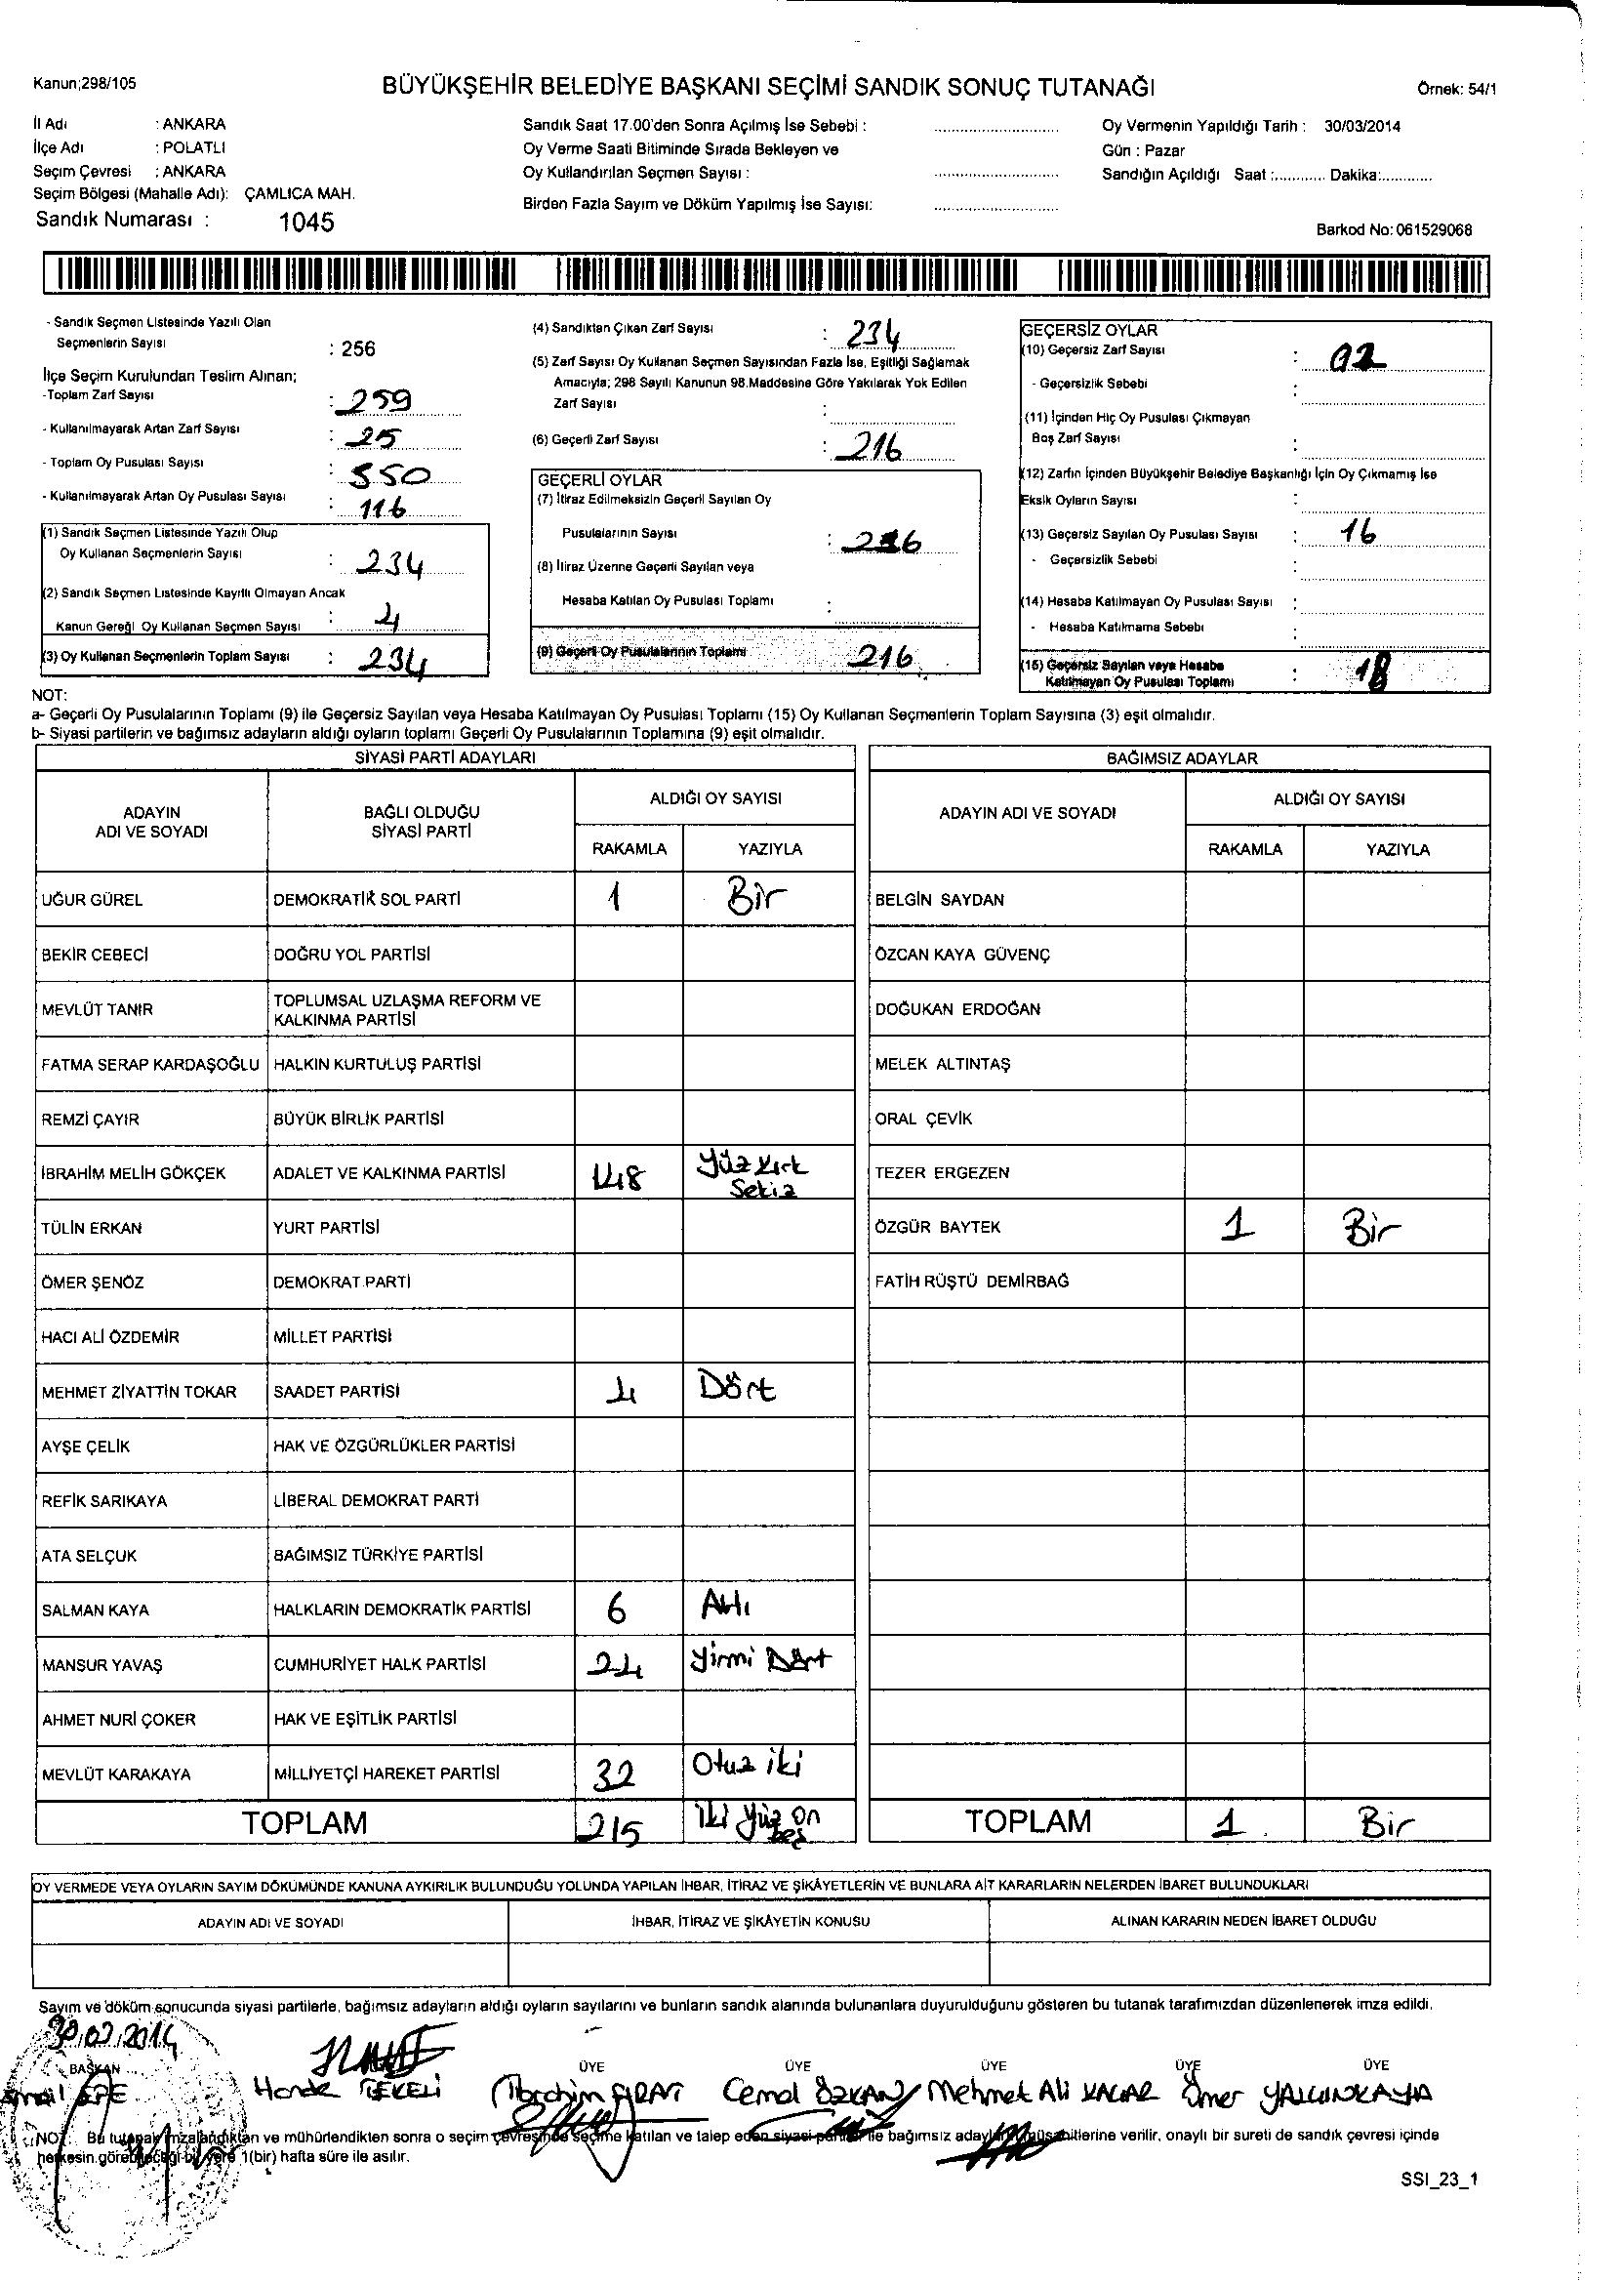 Kanun;298/105
BÜYÜKŞEHİR BELEDİYE BAŞKANI SEÇİMİ SANDIK SONUÇ TUTANAĞI
Örnek: 54/1
İl Adı : ANKARA
İlçe Adı : POLATLI
Seçim Çevresi : ANKARA
Seçim Bölgesi (Mahalle Adı): ÇAMLICA MAH.
Sandık Numarası : 1045
Sandık Saat 17.00'den Sonra Açılmış İse Sebebi :
Oy Verme Saati Bitiminde Sırada Bekleyen ve
Oy Kullandırılan Seçmen Sayısı :
Birden Fazla Sayım ve Döküm Yapılmış İse Sayısı:
Oy Vermenin Yapıldığı Tarih : 30/03/2014
Gün : Pazar
Sandığın Açıldığı Saat :............ Dakika:............
Barkod No: 061529068
- Sandık Seçmen Listesinde Yazılı Olan
Seçmenlerin Sayısı : 256
İlçe Seçim Kurulundan Teslim Alınan;
-Toplam Zarf Sayısı : 259
- Kullanılmayarak Artan Zarf Sayısı : 25
- Toplam Oy Pusulası Sayısı : 550
- Kullanılmayarak Artan Oy Pusulası Sayısı : 116
(1) Sandık Seçmen Listesinde Yazılı Olup
Oy Kullanan Seçmenlerin Sayısı : 234
(2) Sandık Seçmen Listesinde Kayıtlı Olmayan Ancak
Kanun Gereği Oy Kullanan Seçmen Sayısı : 4
(3) Oy Kullanan Seçmenlerin Toplam Sayısı : 234
(4) Sandıktan Çıkan Zarf Sayısı : 234
(5) Zarf Sayısı Oy Kullanan Seçmen Sayısından Fazla İse, Eşitliği Sağlamak
Amacıyla; 298 Sayılı Kanunun 98.Maddesine Göre Yakılarak Yok Edilen
Zarf Sayısı :
(6) Geçerli Zarf Sayısı : 216
GEÇERLİ OYLAR
(7) İtiraz Edilmeksizin Geçerli Sayılan Oy
Pusulalarının Sayısı : 216
(8) İtiraz Üzerine Geçerli Sayılan veya
Hesaba Katılan Oy Pusulası Toplamı :
(9) Geçerli Oy Pusulalarının Toplamı 216
GEÇERSİZ OYLAR
(10) Geçersiz Zarf Sayısı : 02
- Geçersizlik Sebebi :
(11) İçinden Hiç Oy Pusulası Çıkmayan
Boş Zarf Sayısı :
(12) Zarfın İçinden Büyükşehir Belediye Başkanlığı İçin Oy Çıkmamış İse
Eksik Oyların Sayısı :
(13) Geçersiz Sayılan Oy Pusulası Sayısı : 16
- Geçersizlik Sebebi :
(14) Hesaba Katılmayan Oy Pusulası Sayısı :
- Hesaba Katılmama Sebebi :
(15) Geçersiz Sayılan veya Hesaba
Katılmayan Oy Pusulası Toplamı : 18
NOT:
a- Geçerli Oy Pusulalarının Toplamı (9) ile Geçersiz Sayılan veya Hesaba Katılmayan Oy Pusulası Toplamı (15) Oy Kullanan Seçmenlerin Toplam Sayısına (3) eşit olmalıdır.
b- Siyasi partilerin ve bağımsız adayların aldığı oyların toplamı Geçerli Oy Pusulalarının Toplamına (9) eşit olmalıdır.
SİYASİ PARTİ ADAYLARI
ADAYIN ADI VE SOYADI BAĞLI OLDUĞU SİYASİ PARTİ ALDIĞI OY SAYISI
RAKAMLA YAZIYLA
UĞUR GÜREL DEMOKRATİK SOL PARTİ 1 Bir
BEKİR CEBECİ DOĞRU YOL PARTİSİ
MEVLÜT TANIR TOPLUMSAL UZLAŞMA REFORM VE KALKINMA PARTİSİ
FATMA SERAP KARDAŞOĞLU HALKIN KURTULUŞ PARTİSİ
REMZİ ÇAYIR BÜYÜK BİRLİK PARTİSİ
İBRAHİM MELİH GÖKÇEK ADALET VE KALKINMA PARTİSİ 148 Yüz Kırk Sekiz
TÜLİN ERKAN YURT PARTİSİ
ÖMER ŞENÖZ DEMOKRAT PARTİ
HACI ALİ ÖZDEMİR MİLLET PARTİSİ
MEHMET ZİYATTİN TOKAR SAADET PARTİSİ 4 Dört
AYŞE ÇELİK HAK VE ÖZGÜRLÜKLER PARTİSİ
REFİK SARIKAYA LİBERAL DEMOKRAT PARTİ
ATA SELÇUK BAĞIMSIZ TÜRKİYE PARTİSİ
SALMAN KAYA HALKLARIN DEMOKRATİK PARTİSİ 6 Altı
MANSUR YAVAŞ CUMHURİYET HALK PARTİSİ 24 Yirmi Dört
AHMET NURİ ÇOKER HAK VE EŞİTLİK PARTİSİ
MEVLÜT KARAKAYA MİLLİYETÇİ HAREKET PARTİSİ 32 Otuz iki
TOPLAM 215 İki Yüz on beş
BAĞIMSIZ ADAYLAR
ADAYIN ADI VE SOYADI ALDIĞI OY SAYISI
RAKAMLA YAZIYLA
BELGİN SAYDAN
ÖZCAN KAYA GÜVENÇ
DOĞUKAN ERDOĞAN
MELEK ALTINTAŞ
ORAL ÇEVİK
TEZER ERGEZEN
ÖZGÜR BAYTEK 1 Bir
FATİH RÜŞTÜ DEMİRBAĞ
TOPLAM 1 Bir
OY VERMEDE VEYA OYLARIN SAYIM DÖKÜMÜNDE KANUNA AYKIRILIK BULUNDUĞU YOLUNDA YAPILAN İHBAR, İTİRAZ VE ŞİKÂYETLERİN VE BUNLARA AİT KARARLARIN NELERDEN İBARET BULUNDUKLARI
ADAYIN ADI VE SOYADI İHBAR, İTİRAZ VE ŞİKÂYETİN KONUSU ALINAN KARARIN NEDEN İBARET OLDUĞU
Sayım ve döküm sonucunda siyasi partilerle, bağımsız adayların aldığı oyların sayılarını ve bunların sandık alanında bulunanlara duyurulduğunu gösteren bu tutanak tarafımızdan düzenlenerek imza edildi.
30.03.2014
BAŞKAN ÜYE ÜYE ÜYE ÜYE ÜYE
EPE Hande TEKELİ İbrahim FIRAT Cemal ÖZKAN Mehmet Ali Ömer YALÇINKAYA
NOT: Bu tutanak imzalandıktan ve mühürlendikten sonra o seçim çevresinde seçime katılan ve talep eden siyasi partiler ile bağımsız adayların müşahitlerine verilir, onaylı bir sureti de sandık çevresi içinde
herkesin görebileceği bir yere 1(bir) hafta süre ile asılır.
SSI_23_1